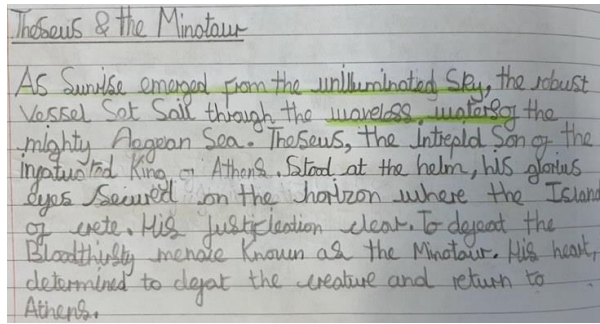 Theseus & the Minotaur
As Sunrise emerged from the unilluminated Sky, the robust
Vessel Set Sail through the waveless waters of the
mighty Aegean Sea. Theseus, the Intrepid Son of the
infatuated King of Athens. Stood at the helm, his glorius
eyes Secured on the horizon where the Island
of crete. His justification clear. To defeat the
Bloodthirsty menace Known as the Minotaur. His heart,
determined to defat the creature and return to
Athens.